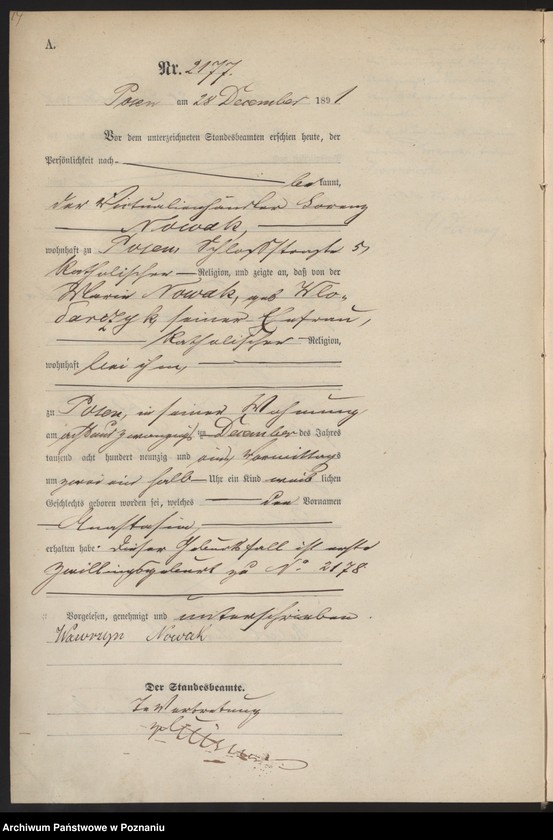 14
A.
Nr. 2177.
Posen am 28 December 1891
Vor dem unterzeichneten Standesbeamten erschien heute, der
Persönlichkeit nach
bekannt,
der Victualienhändler Lorenz
Nowak,
wohnhaft zu Posen, Schloßstraße 5,
katholischer Religion, und zeigte an, daß von der
Marie Nowak, geb Wlo-
darczyk, seiner Ehefrau,
katholischer Religion,
wohnhaft bei ihm,
zu Posen, in seiner Wohnung
am acht und zwanzigsten December des Jahres
tausend acht hundert neunzig und ein, Vormittags
um zwei ein halb Uhr ein Kind weiblichen
Geschlechts geboren worden sei, welches den Vornamen
Anastasia,
erhalten habe. Dieser Geburtsfall ist erste
Zwillingsgeburt zu No 2178
Vorgelesen, genehmigt und unterschrieben.
Wawrzyn Nowak
Der Standesbeamte.
In Vertretung
Archiwum Państwowe w Poznaniu